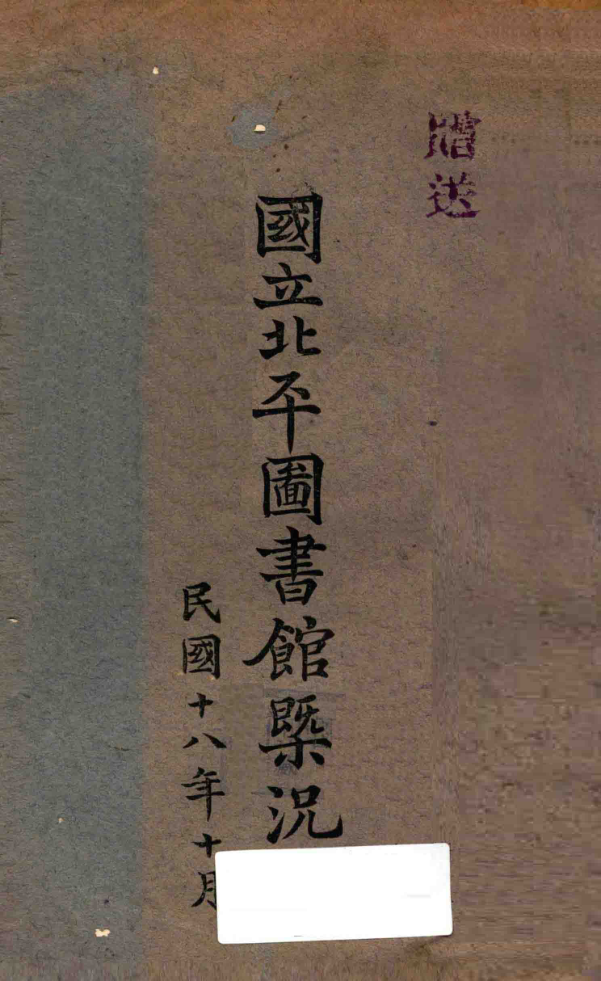 贈送
國立北平圖書館槩況
民國十八年十月